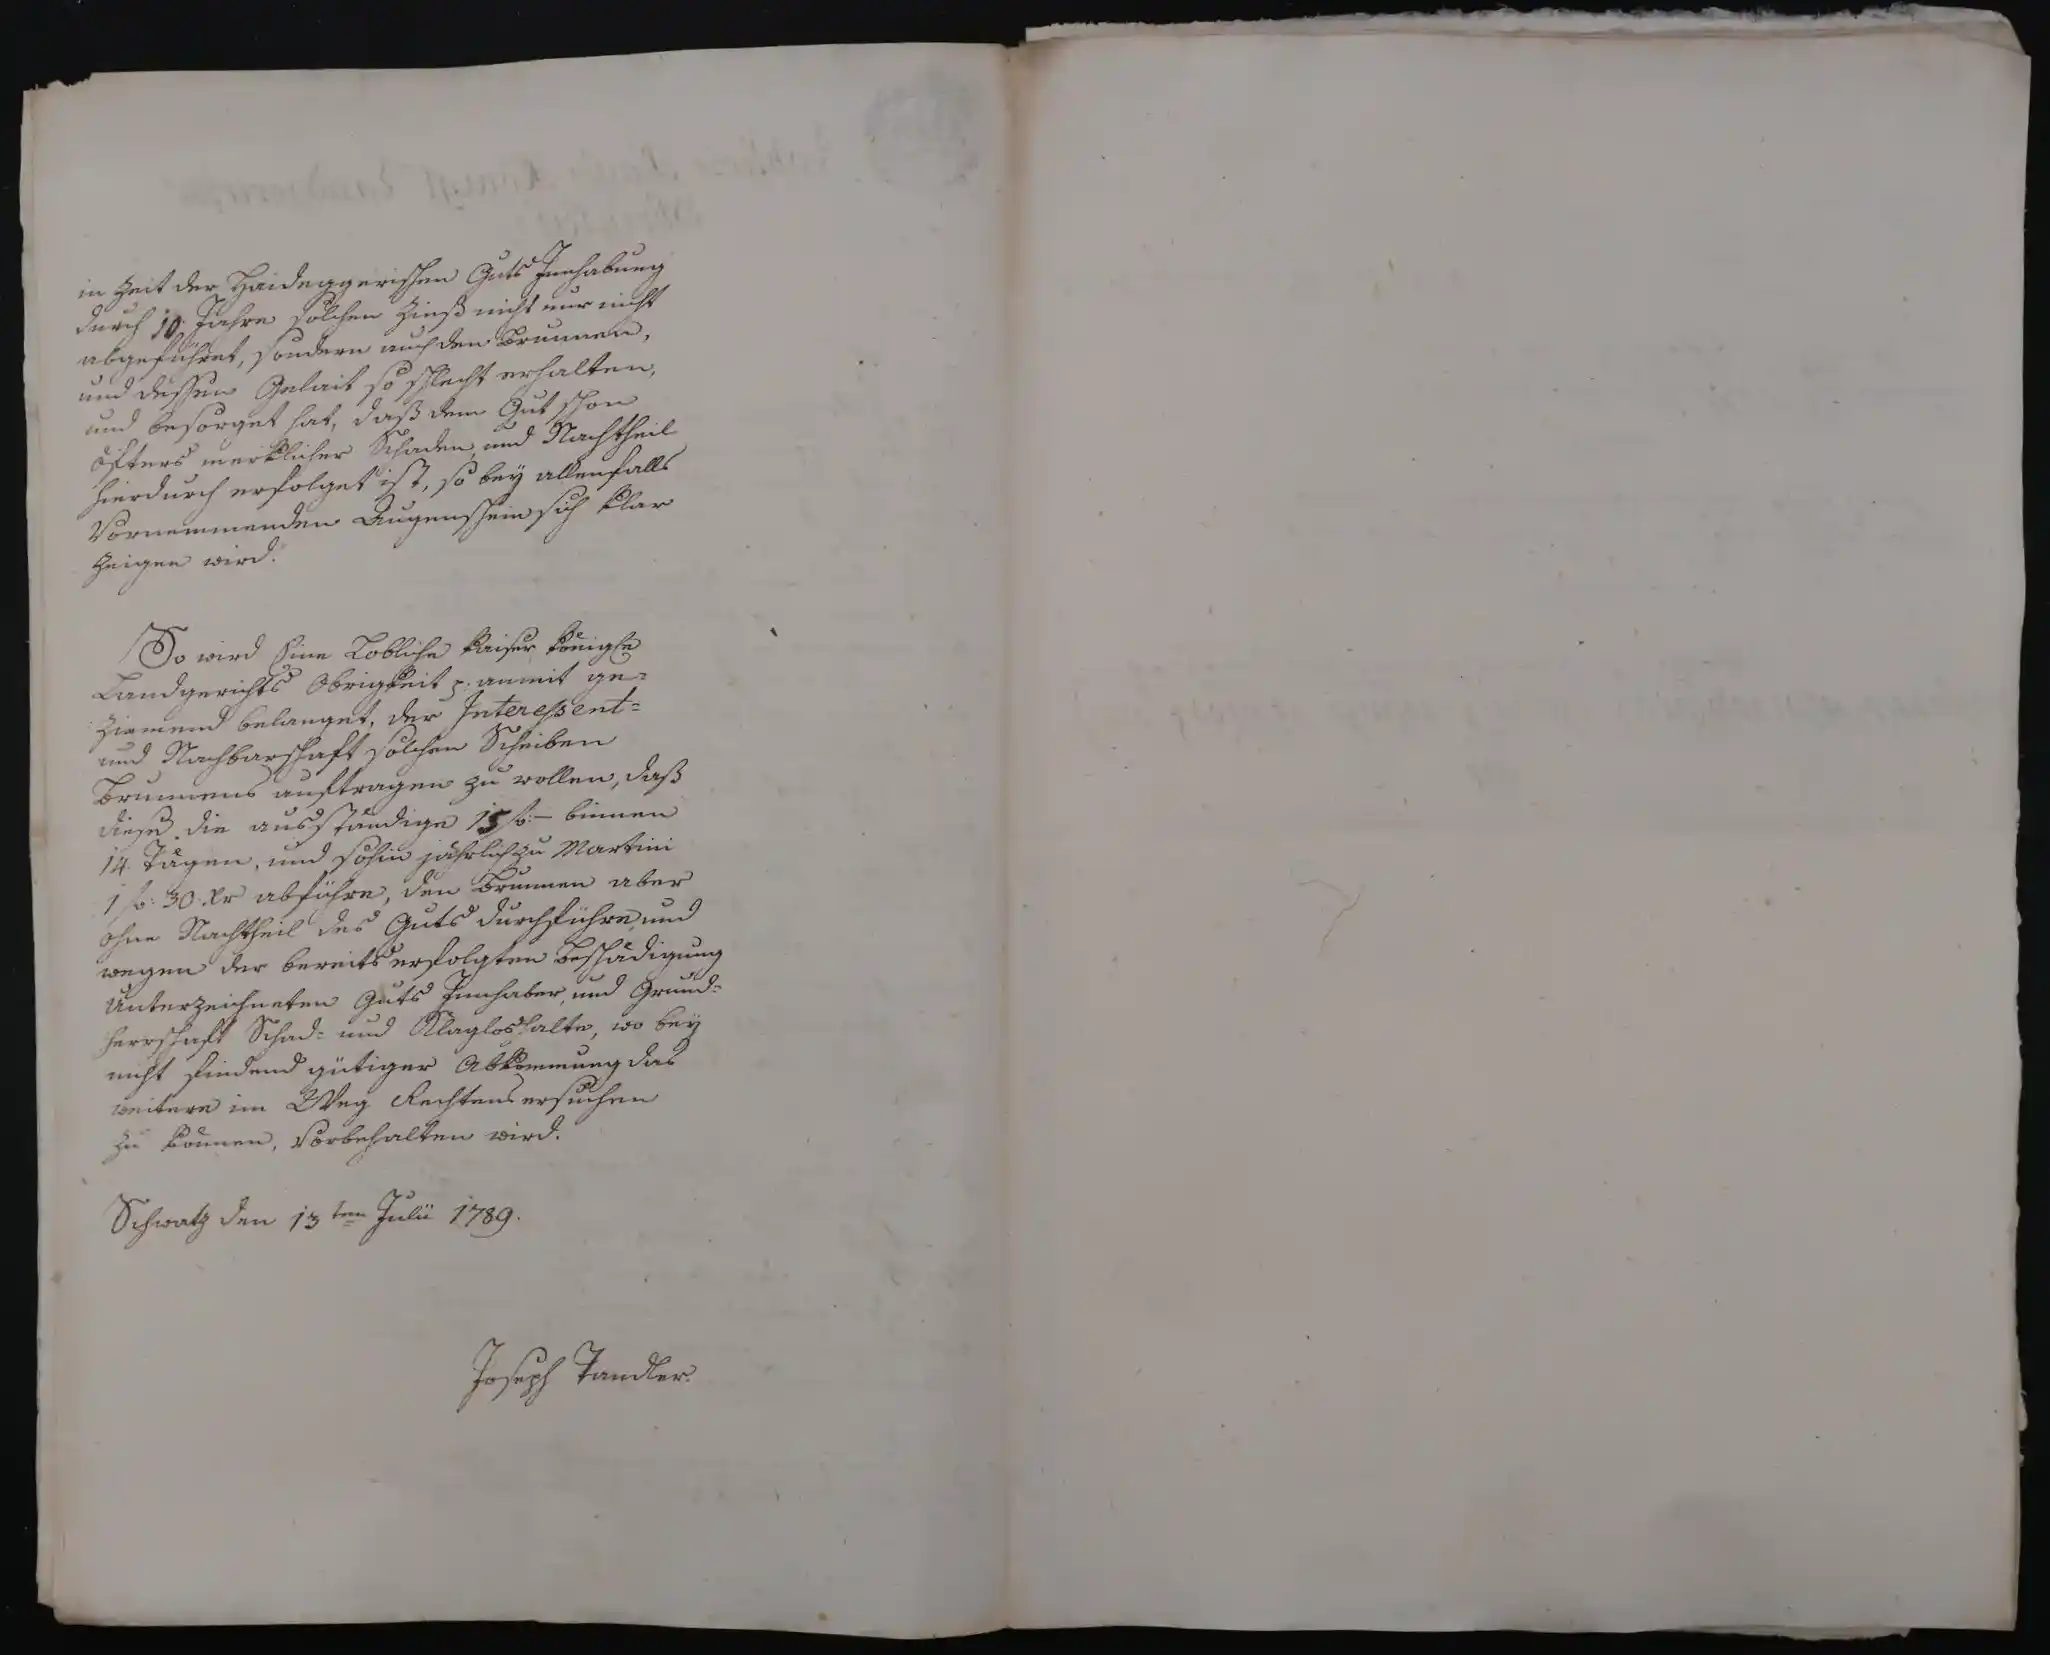 in Zeit der Haideggerischen Guts Innhabung
durch 10. Jahre solchen Zinß nicht nur nicht
abgeführet, sondern auch den Brunnen,
und dessen Gelait so schlecht erhalten,
und besorget hat, daß dem Gut schon
öfters merklicher Schaden, und Nachtheil
hierdurch erfolget ist, so bey allenfalls
Vornemmenden Augenschein sich klar
zeigen wird.
So wird Eine Lobliche kaiser königle
Landgerichts Obrigkeit p. anmit ge=
ziemend belanget, der Interessent=
und Nachbarschaft solchen Scheiben
Brunnens auftragen zu wollen, daß
diese die ausständige 15 f:– binnen
14. Tägen, und sohin jährlich zu Martini
1 f: 30. Xr abführe, den Brunnen aber
ohne Nachtheil des Guts durchführe, und
wegen der bereits erfolgten Beschädigung
Unterzeichneten Guts Innhaber, und Grund=
herrschaft Schad= und Klaglos halte, wo bey
nicht findend gütiger Abkommung das
weitere im Weg Rechtens ersuchen
zu können, Vorbehalten wird.
Schwatz den 13ten Julii 1789.
Joseph Tandler.